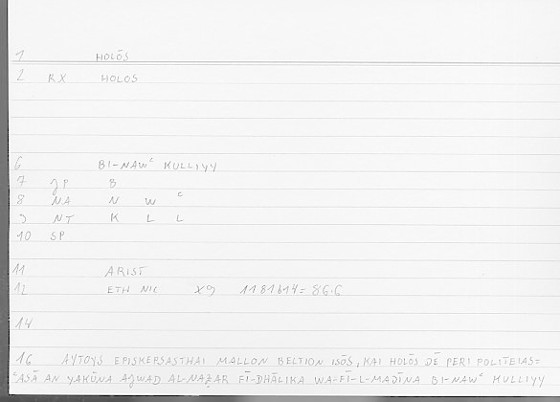 1 HOLŌS
2 RX HOLOS
6 BI-NAWʿ KULLIYY
7 JP B
8 NA N W ʿ
9 NT K L L
10 SP
11 ARIST
12 ETH NIC X9 1181b14 = 86.6
14
16 AYTOYS EPISKEPSASTHAI MALLON BELTION ISŌS, KAI HOLŌS DĒ PERI POLITEIAS=
ʿASĀ AN YAKŪNA AJWAD AL-NAẒAR FĪ-DHĀLIKA WA-FĪ-L-MADĪNA BI-NAWʿ KULLIYY